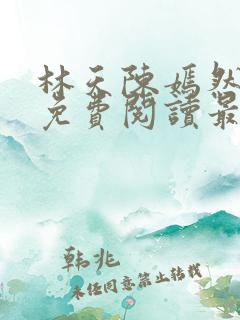 林天陳嫣然
免費閱讀最
韩兆
未经同意禁止转载